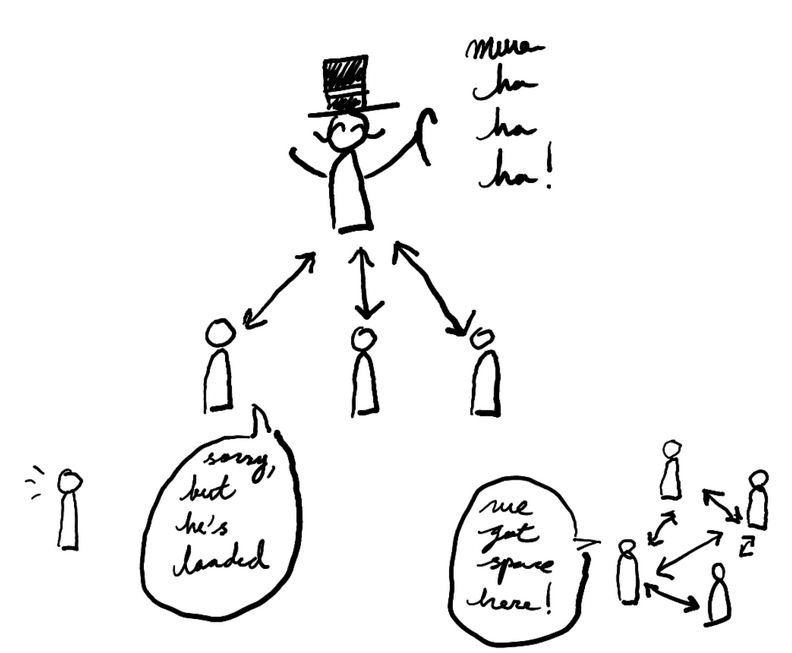 mua
ha
ha
ha!
sorry,
but
he's
loaded
we
got
space
here!